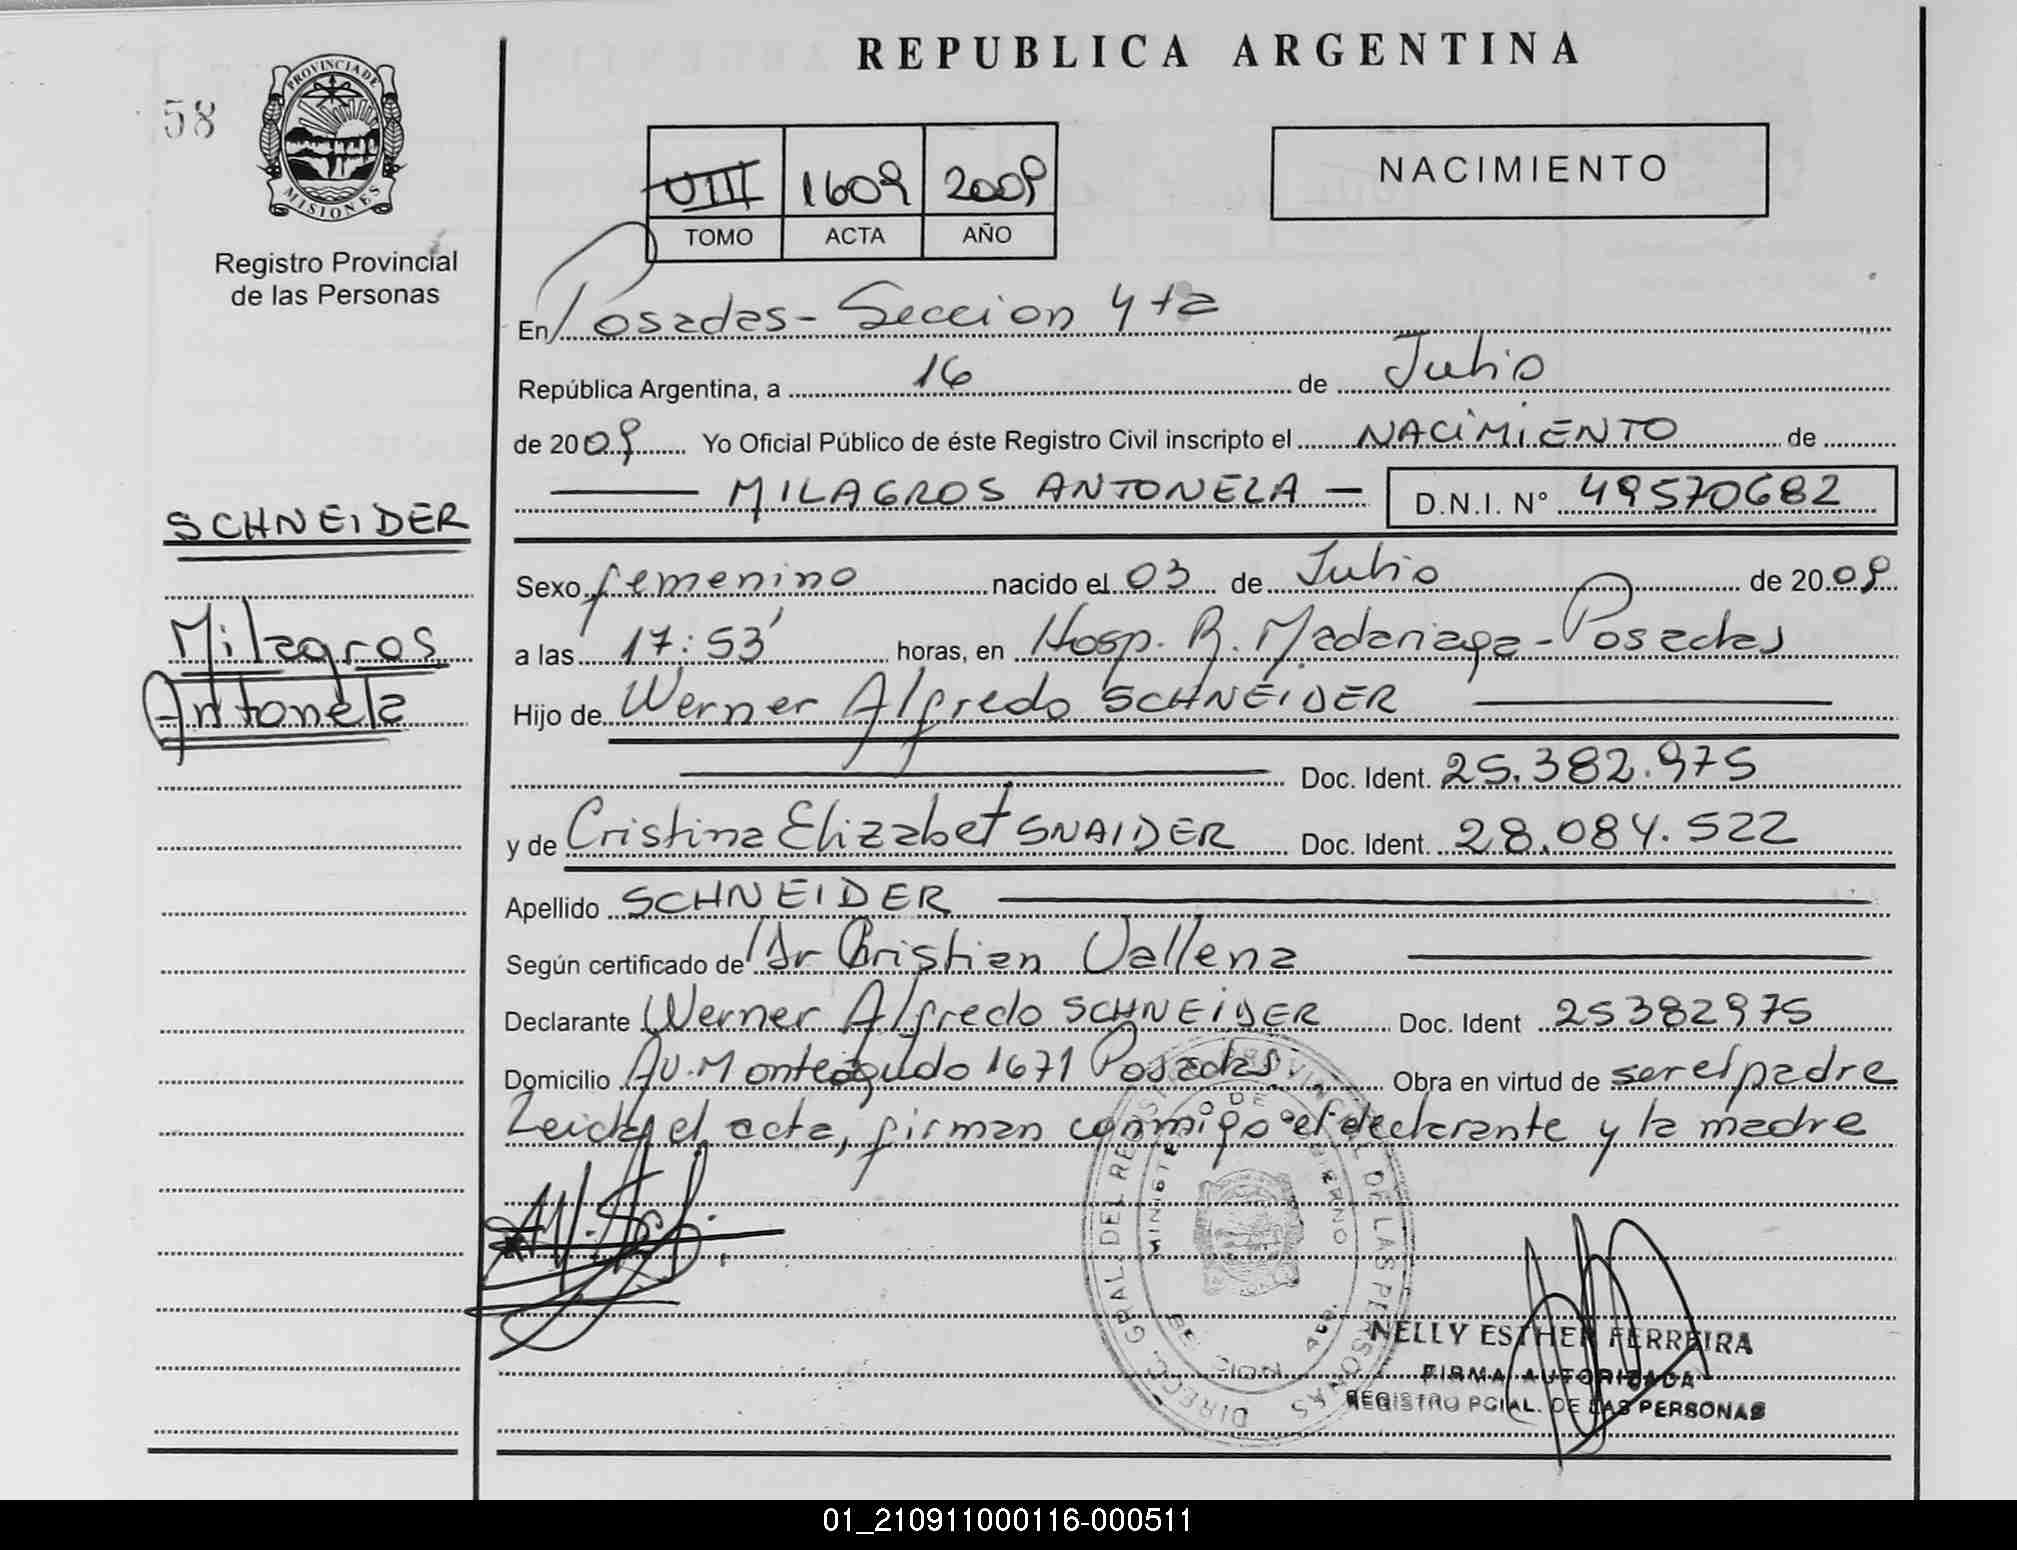 REPUBLICA ARGENTINA
58
PROVINCIA DE
MISIONES
Registro Provincial
de las Personas
VIII 1609 2009
TOMO ACTA AÑO
NACIMIENTO
En Posadas - Seccion 4ta
República Argentina, a 16 de Julio
de 2009 Yo Oficial Público de éste Registro Civil inscripto el NACIMIENTO de
MILAGROS ANTONELA D.N.I. N° 49570682
SCHNEIDER
Milagros
Antonela
Sexo femenino nacido el 03 de Julio de 2009
a las 17:53' horas, en Hosp. R. Madariaga - Posadas
Hijo de Werner Alfredo SCHNEIDER
Doc. Ident. 25.382.975
y de Cristina Elizabet SNAIDER Doc. Ident. 28.084.522
Apellido SCHNEIDER
Según certificado de Dr Cristian Vallena
Declarante Werner Alfredo SCHNEIDER Doc. Ident 25382975
Domicilio Av. Monteagudo 1671 Posadas Obra en virtud de ser el padre
Leida el acta, firman conmigo el declarante y la madre
DIRECC. GRAL. DEL REGISTRO PROVINCIAL DE LAS PERSONAS
MINISTERIO DE GOBIERNO
NELLY ESTHER FERREIRA
FIRMA AUTORIZADA
REGISTRO PCIAL. DE LAS PERSONAS
01_210911000116-000511